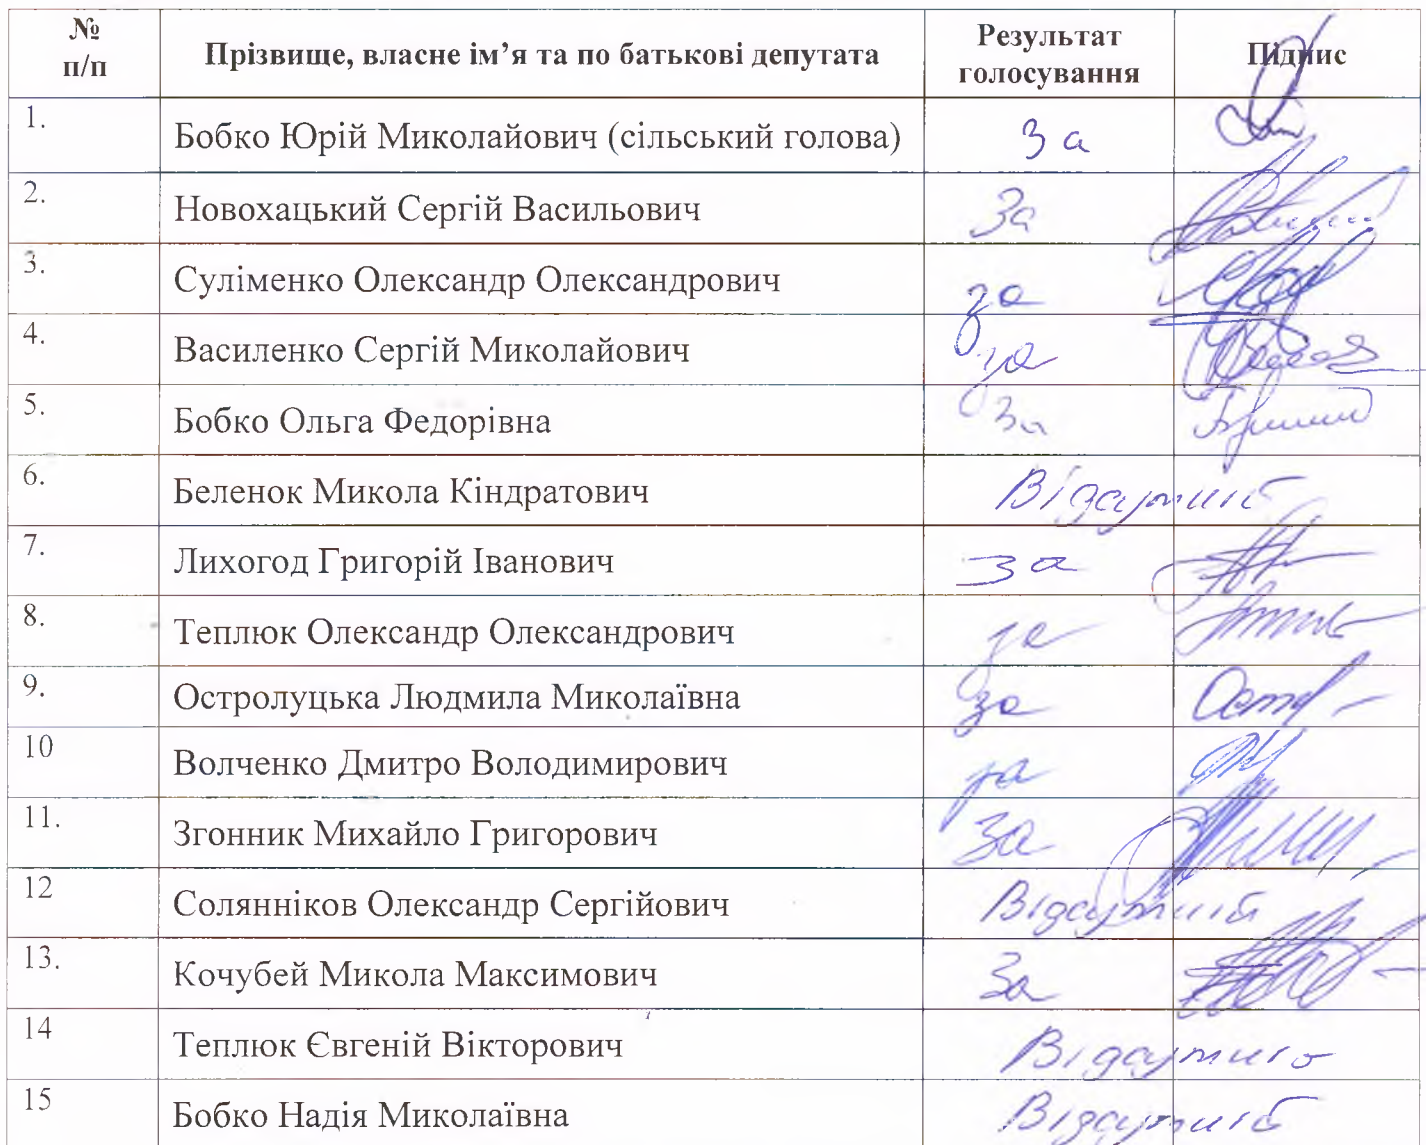 № п/п Прізвище, власне ім’я та по батькові депутата Результат голосування Підпис
1. Бобко Юрій Миколайович (сільський голова) За
2. Новохацький Сергій Васильович За
3. Суліменко Олександр Олександрович за
4. Василенко Сергій Миколайович за
5. Бобко Ольга Федорівна За
6. Беленок Микола Кіндратович Відсутній
7. Лихогод Григорій Іванович за
8. Теплюк Олександр Олександрович за
9. Остролуцька Людмила Миколаївна за
10 Волченко Дмитро Володимирович за
11. Згонник Михайло Григорович За
12 Солянніков Олександр Сергійович Відсутній
13. Кочубей Микола Максимович За
14 Теплюк Євгеній Вікторович Відсутній
15 Бобко Надія Миколаївна Відсутній